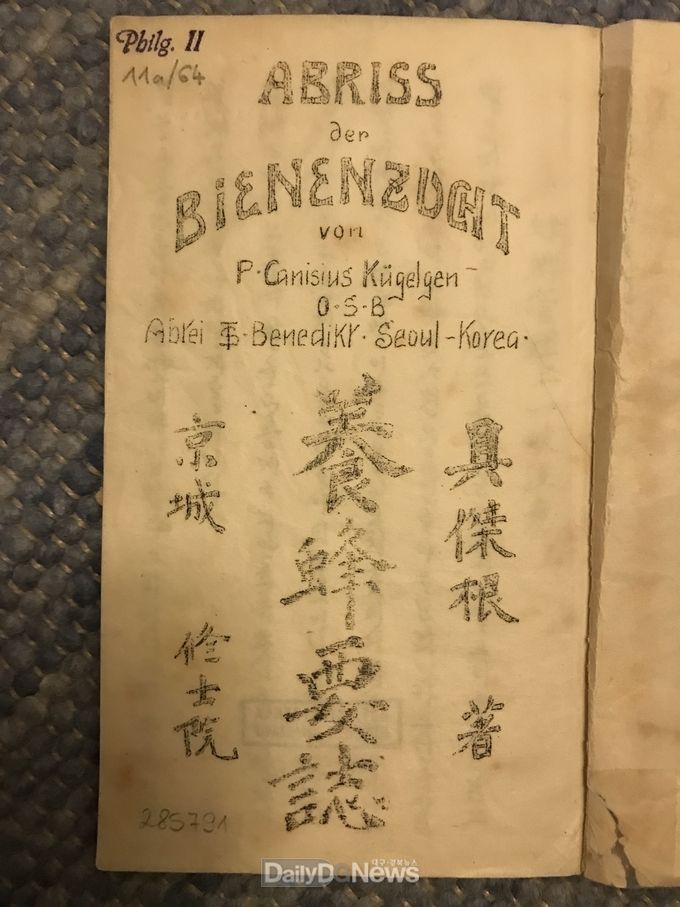 Philg. II
11a/64
ABRISS
der
BiENENZUCHT
von
P. Canisius Kügelgen
O·S·B
Abtei St. Benedikt. Seoul-Korea.
具傑根 著
養蜂要誌
京城 修士院
285791
대구·경북뉴스
DailyDGNews